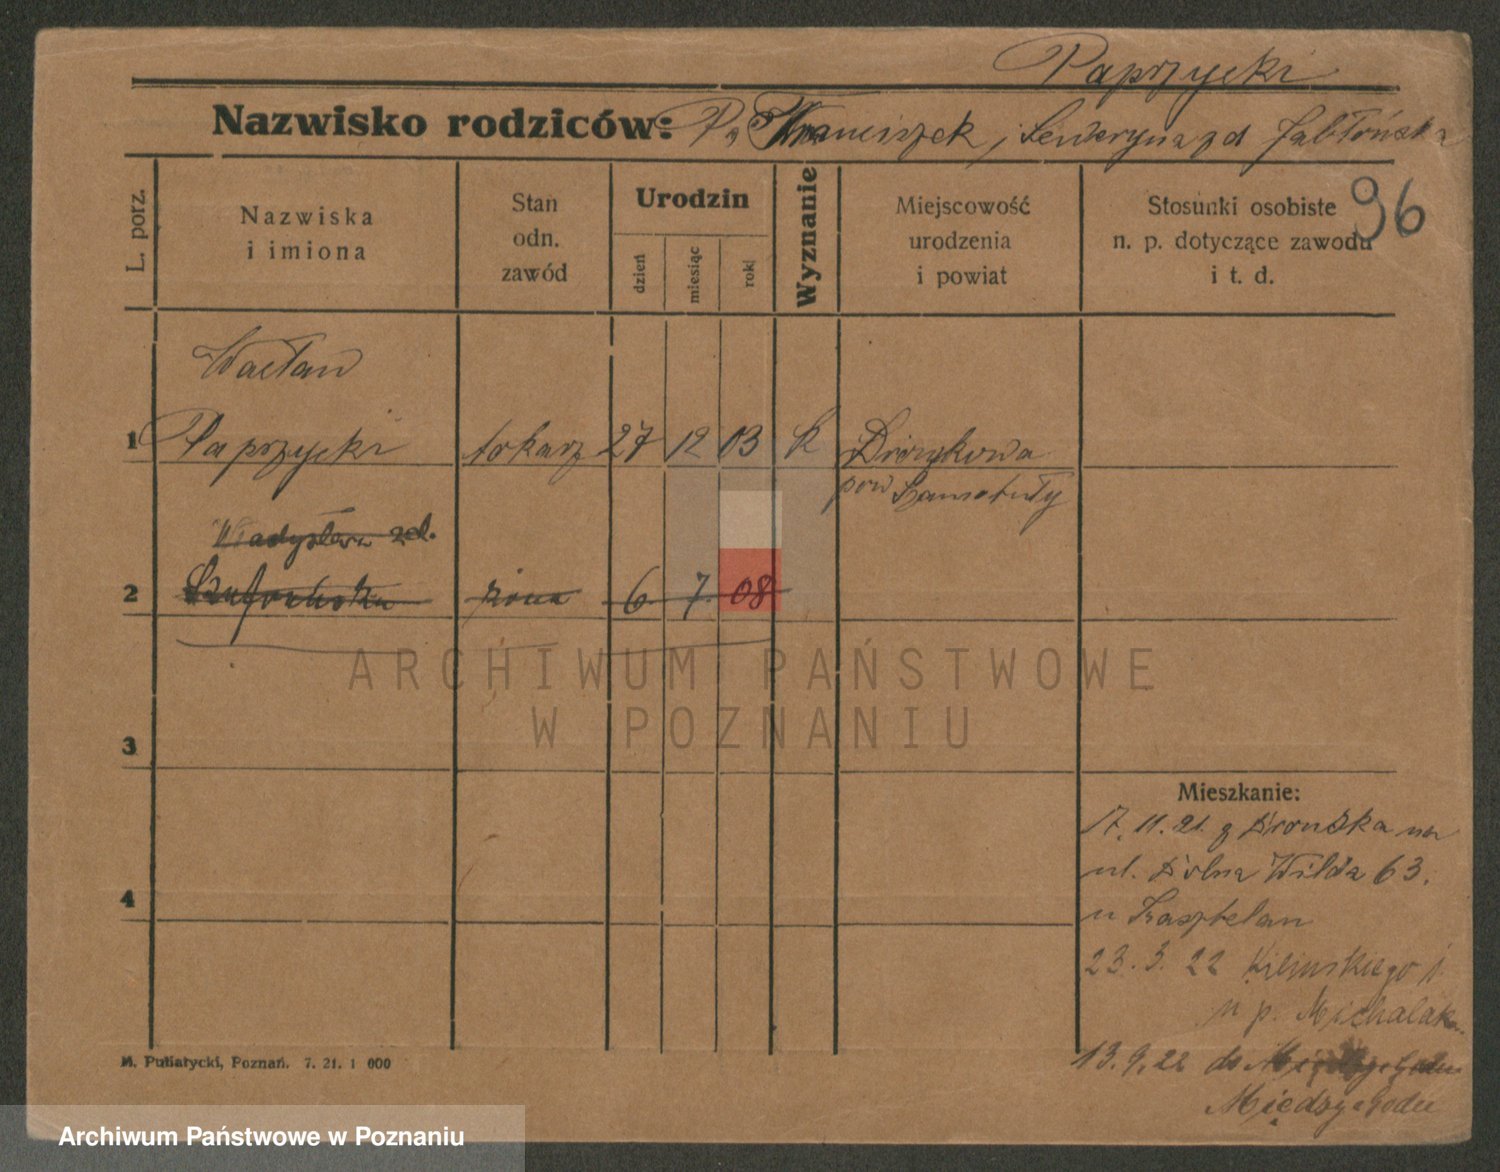 Paprzycki
Nazwisko rodziców: Pa Franciszek i Seweryna zd Jabłońska
96
L. porz.
Nazwiska
i imiona
Stan
odn.
zawód
Urodzin
dzień
miesiąc
rok
Wyznanie
Miejscowość
urodzenia
i powiat
Stosunki osobiste
n. p. dotyczące zawodu
i t. d.
Wacław
1 Paprzycki tokarz 27 12 03 k
pow Szamotuły
Władysława zd.
2 żona 6 7. 08
3
4
Mieszkanie:
17. 11. 21. z na
ul. Dolna Wilda 63.
u Kasztelan
23. 3. 22 Kilińskiego
u p. Michalak
13. 9. 22 do
Międzychodu
M. Putiatycki, Poznań. 7. 21. 1 000
ARCHIWUM PAŃSTWOWE
W POZNANIU
Archiwum Państwowe w Poznaniu